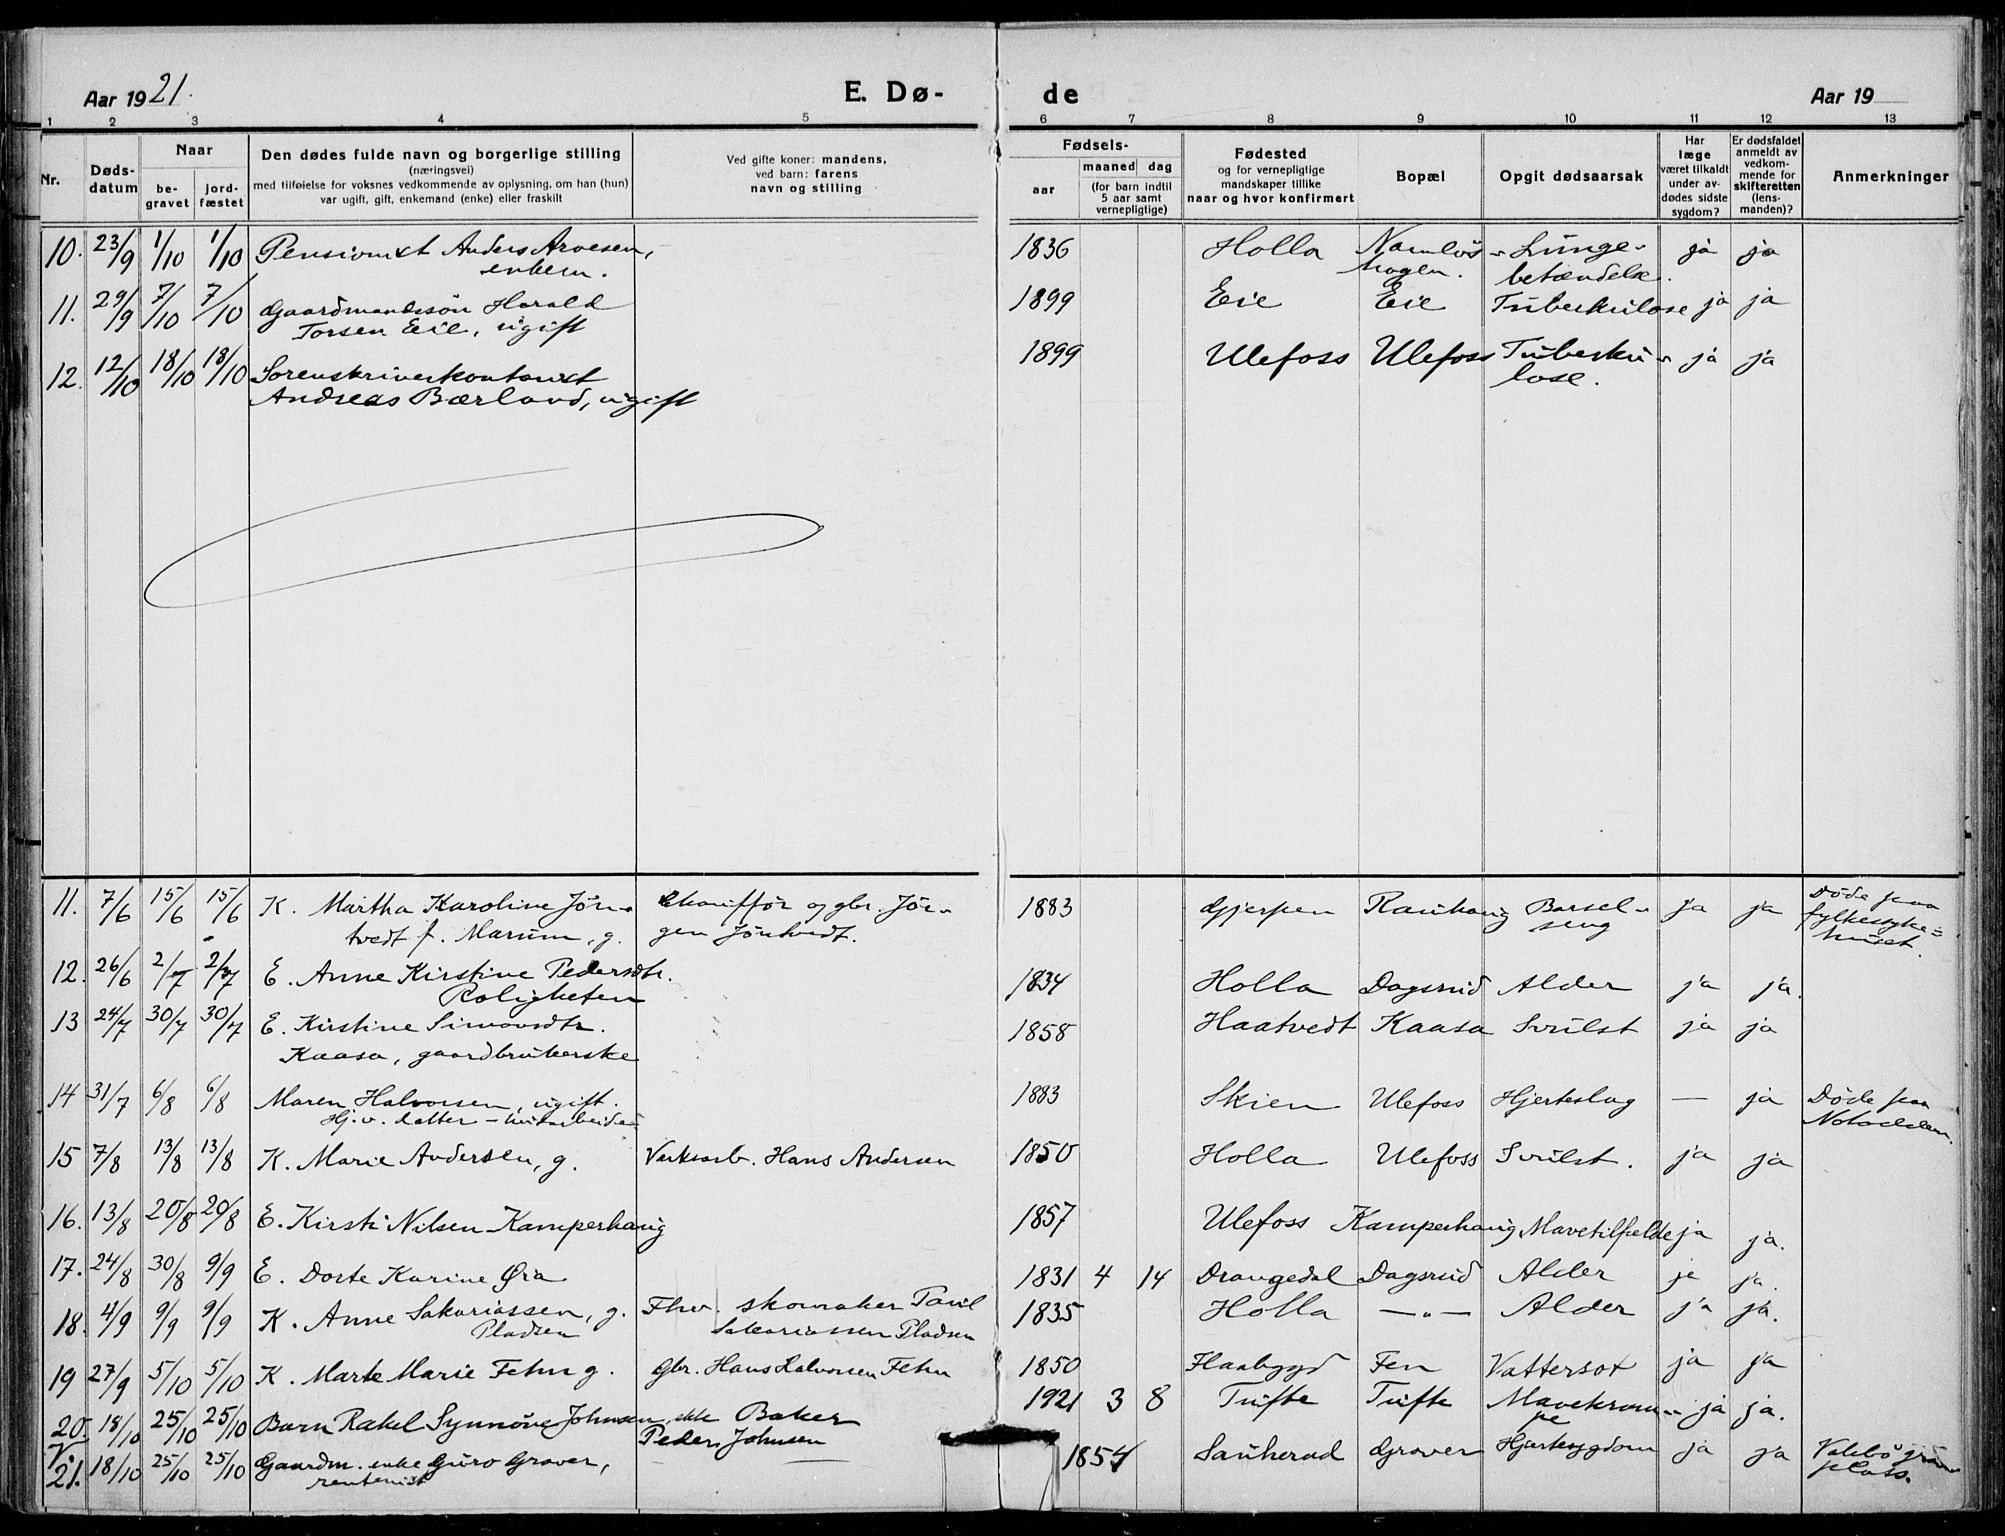 Aar 1921. E. Dø- de Aar 19
1 2 3 4 5 6 7 8 9 10 11 12 13
Nr.
Døds-
datum
Naar
be-
gravet
jord-
fæstet
Den dødes fulde navn og borgerlige stilling
(næringsvei)
med tilføielse for voksnes vedkommende av oplysning, om han (hun)
var ugift, gift, enkemand (enke) eller fraskilt
Ved gifte koner: mandens,
ved barn: farens
navn og stilling
Fødsels-
aar
maaned dag
(for barn indtil
5 aar samt
vernepligtige)
Fødested
og for vernepligtige
mandskaper tillike
naar og hvor konfirmert
Bopæl
Opgit dødsaarsak
Har
læge
været tilkaldt
under av-
dødes sidste
sygdom?
Er dødsfaldet
anmeldt av
vedkom-
mende for
skifteretten
(lens-
manden)?
Anmerkninger
10. 23/9 1/10 1/10 Pensionist Anders Arvesen, 1836 Holla Namløs- Lunge- ja ja
enkem. hagen. betændelse.
11. 29/9 7/10 7/10 Gaardmandssøn Harald 1899 Eie Eie Tuberkulose ja ja
Torsen Eie, ugift
12. 12/10 18/10 18/10 Sorenskriverkontorist 1899 Ulefoss Ulefoss Tuberku- ja ja
Andreas Bærland, ugift lose.
11. 7/6 15/6 15/6 K. Martha Karoline Jøn- Chauffør og gbr. Jør- 1883 Gjerpen Rauhaug Barsel- ja ja Døde paa
tvedt f. Marum, g. gen Jøntvedt. seng fylkessyke=
huset.
12. 26/6 2/7 2/7 E. Anne Kirstine Pedersdtr. 1834 Holla Dagsrud Alder ja ja.
Roligheten
13 24/7 30/7 30/7 E. Kirstine Simonsdtr. 1858 Haatvedt Kaasa Svulst ja ja
Kaasa, gaardbrukerske
14 31/7 6/8 6/8 Maren Halvorsen, ugift. 1883 Skien Ulefoss Hjerteslag — ja Døde paa
Hj.v. datter - Notodden.
15 7/8 13/8 13/8 K. Marie Andersen, g. Verksarb. Hans Andersen 1850 Holla Ulefoss Svulst. ja ja
16. 13/8 20/8 20/8 E. Kirsti Nilsen Kamperhaug 1857 Ulefoss Kamperhaug Mavetilfælde ja ja.
17. 24/8 30/8 9/9 E. Dorte Karine Øra 1831 4 14 Drangedal Dagsrud Alder ja ja.
18. 4/9 9/9 9/9 K. Anne Sakariassen, g. Fhv. skomaker Paul 1835 Holla —"— Alder ja ja.
Pladsen Sakariassen Pladsen
19 27/9 5/10 5/10 K. Marte Marie Fehn g. Gbr. Hans Halvorsen Fehn 1850 Flaabygd Fen Vattersot ja ja
20. 18/10 25/10 25/10 Barn Rakel Synnøve Johnsen, ekte Baker 1921 3 8 Tufte Tufte Mavekram- ja ja.
Peder Johnsen pe
V.
21. 18/10 25/10 25/10 Gaardm. enke Guro Graver, 1854 Sauherad Graver Hjertesygdom ja ja Valebø grav-
rentenist plass.